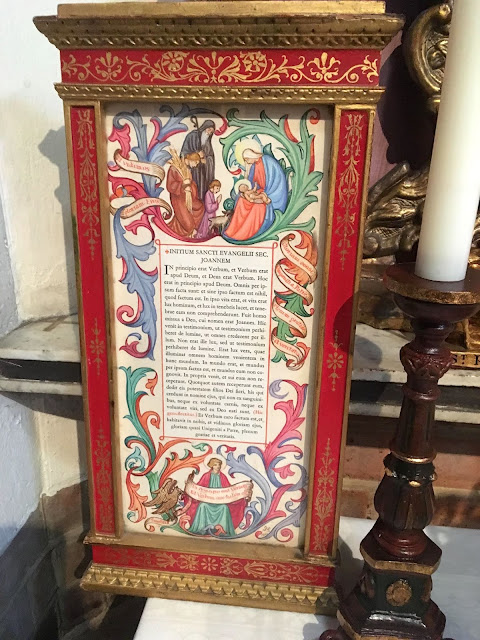 Vidimus
INITIUM SANCTI EVANGELII SEC.
JOANNEM
IN principio erat Verbum, et Verbum erat
apud Deum, et Deus erat Verbum. Hoc
erat in principio apud Deum. Omnia per ip-
sum facta sunt: et sine ipso factum est nihil,
quod factum est. In ipso vita erat, et vita erat
lux hominum, et lux in tenebris lucet, et tene-
bræ eam non comprehenderunt. Fuit homo
missus a Deo, cui nomen erat Joannes. Hic
venit in testimonium, ut testimonium perhi-
beret de lumine, ut omnes crederent per il-
lum. Non erat ille lux, sed ut testimonium
perhiberet de lumine. Erat lux vera, quæ
illuminat omnem hominem venientem in
hunc mundum. In mundo erat, et mundus
per ipsum factus est, et mundus eum non co-
gnovit. In propria venit, et sui eum non re-
ceperunt. Quotquot autem receperunt eum,
dedit eis potestatem filios Dei fieri, his qui
credunt in nomine ejus, qui non ex sanguini-
bus, neque ex voluntate carnis, neque ex
voluntate viri, sed ex Deo nati sunt. (Hic
genuflectitur.) Et Verbum caro factum est, et
habitavit in nobis, et vidimus gloriam ejus,
gloriam quasi Unigeniti a Patre, plenum
gratiæ et veritatis.